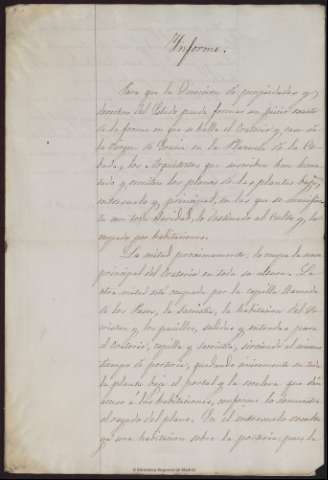 Informe.
Para que la Direccion de propiedades y
derechos del Estado pueda formar un juicio exacto
de la forma en que se halla el Oratorio y casa de
la Virgen de Gracia en la Plazuela de la Ce-
bada, los Arquitectos que suscriben han
y remiten los planos de las plantas baja,
entresuelo y principal, en las que se manifies-
ta con toda claridad, lo destinado al Culto y lo
ocupado por habitaciones.
La mitad proximamente, lo ocupa la nave
principal del Oratorio en toda su altura. La
otra mitad está ocupada por la capilla llamada
de los Pasos, la Sacristia, la habitacion del
y los pasillos, salidas y entradas para
el Oratorio, capilla y sacristia, sirviendo al mismo
tiempo de porteria, quedando únicamente en toda
la planta baja el portal y la escalera que dan
acceso á las habitaciones, conforme lo demuestra
el rayado del plano. En el entresuelo
ya una habitacion sobre la porteria, pues la
© Biblioteca Regional de Madrid